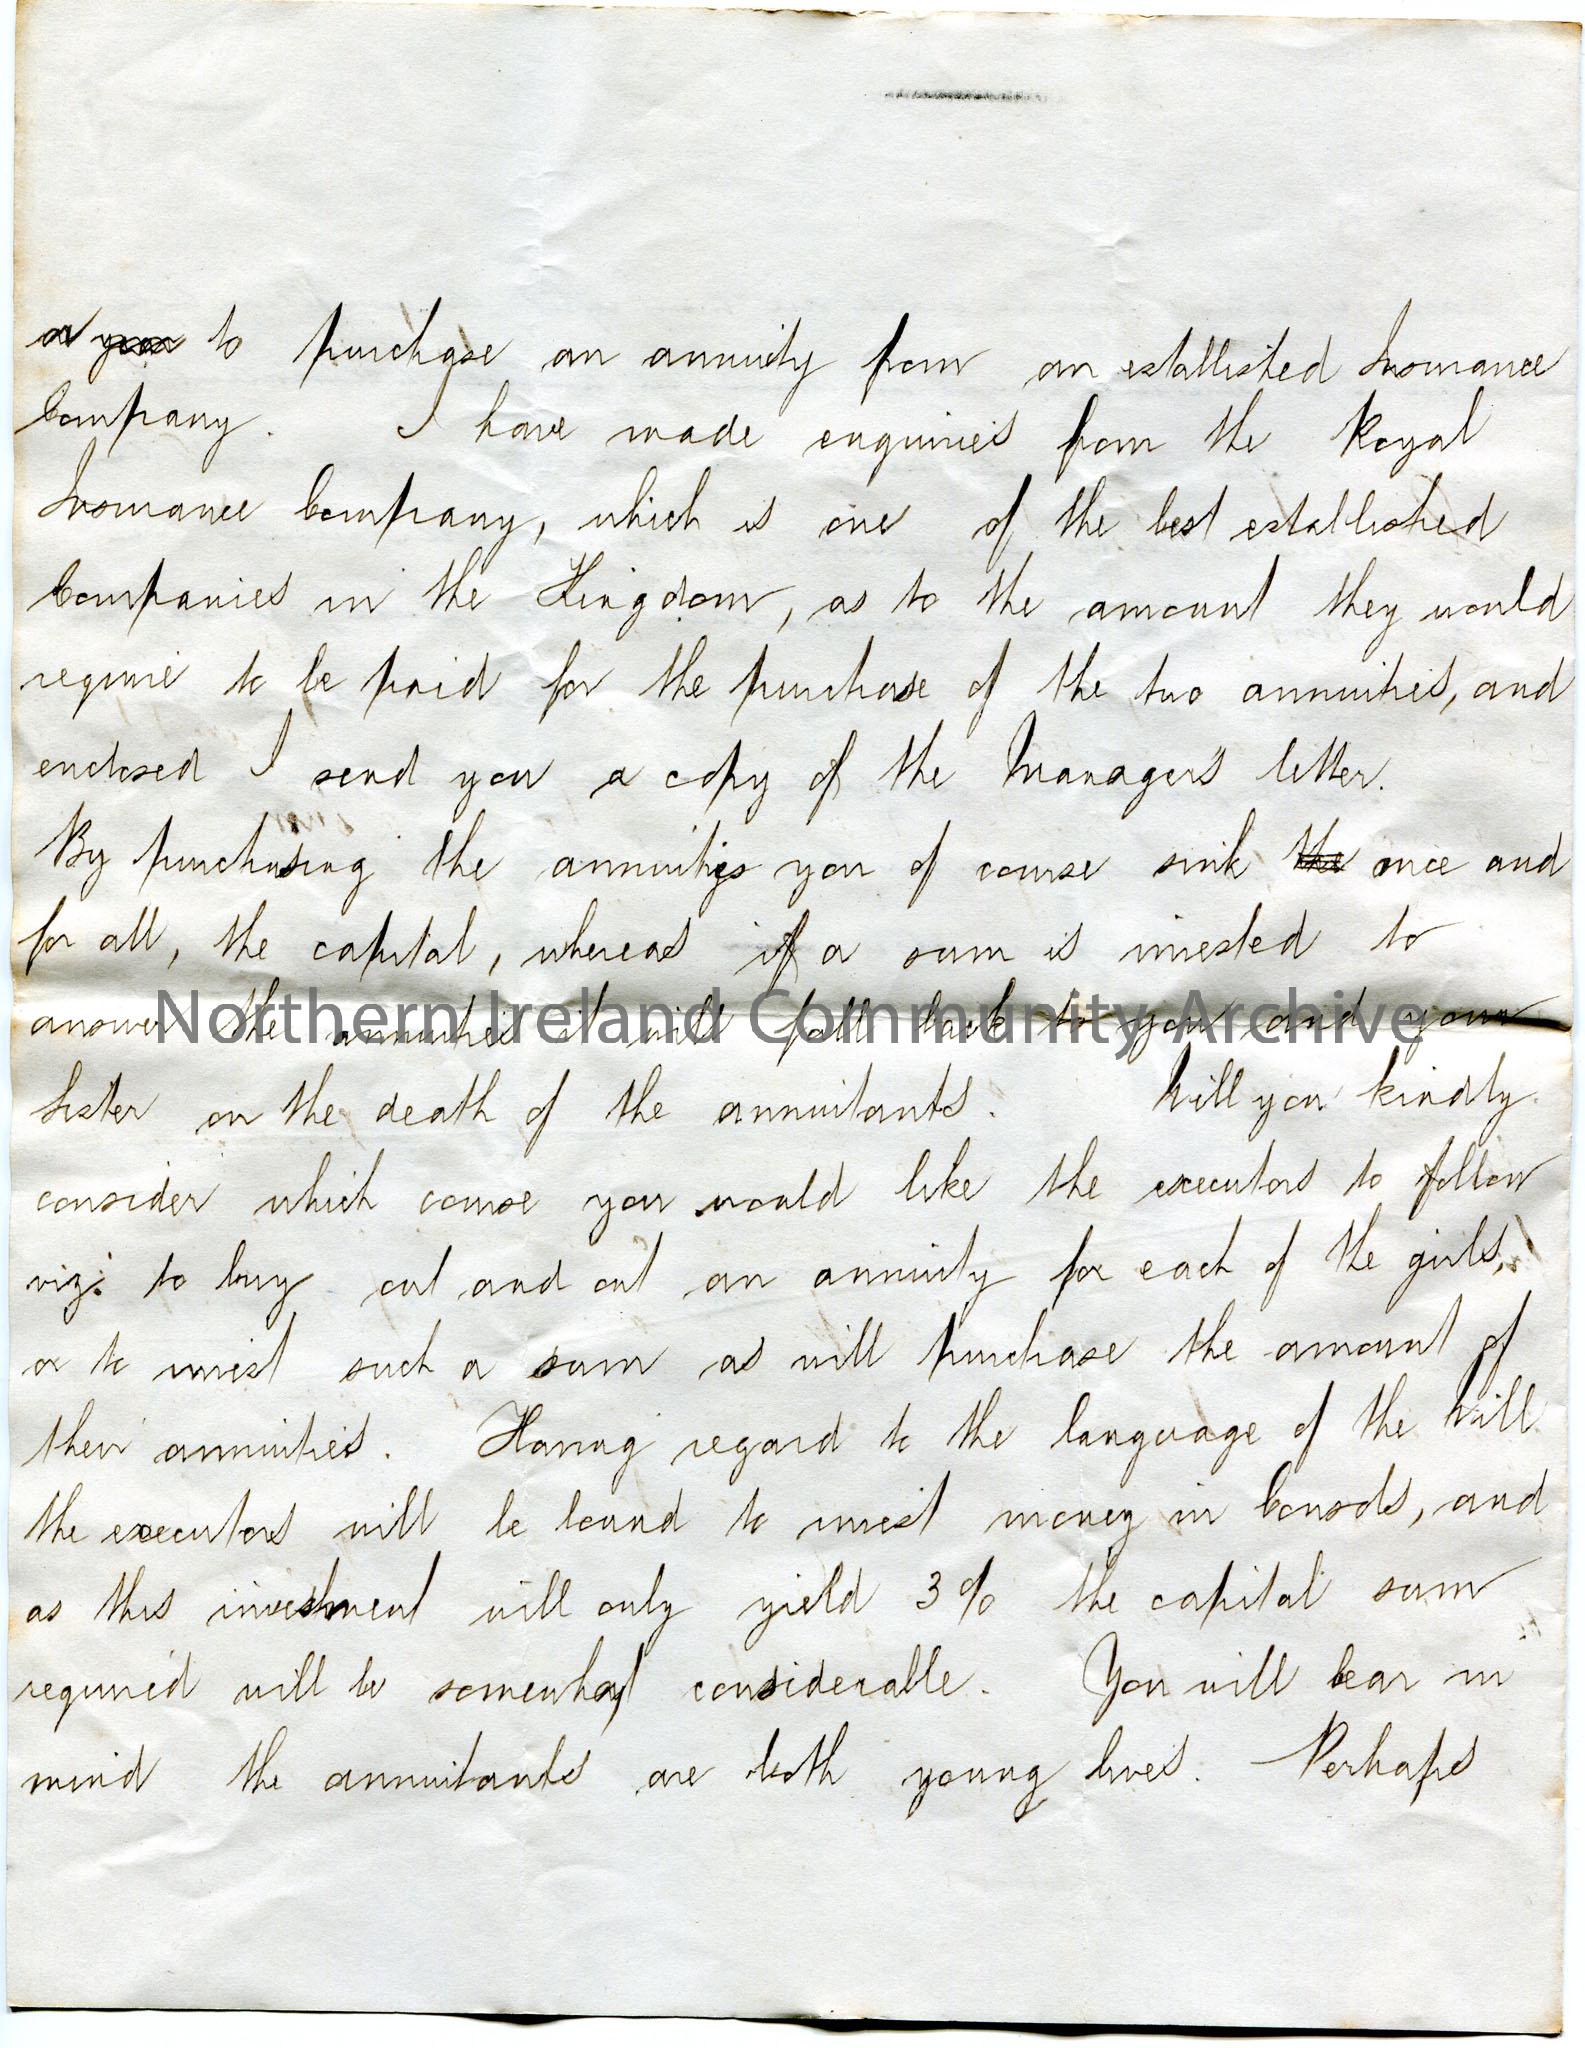 or you to purchase an annuity from an established Insurance
Company. I have made enquiries from the Royal
Insurance Company, which is one of the best established
Companies in the Kingdom, as to the amount they would
require to be paid for the purchase of the two annuities, and
enclosed I send you a copy of the Manager's letter.
By purchasing the annuities you of course sink the once and
for all, the capital, whereas if a sum is invested to
answer the annuities it will fall back to you and your
Northern Ireland Community Archive
Sister on the death of the annuitants. Will you kindly
consider which course you would like the executors to follow
viz: to buy out and out an annuity for each of the girls,
or to invest such a sum as will purchase the amount of
their annuities. Having regard to the language of the Will
the executors will be bound to invest money in Consols, and
as this investment will only yield 3% the capital sum
required will be somewhat considerable. You will bear in
mind the annuitants are both young lives. Perhaps